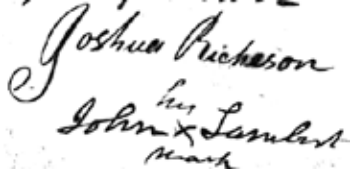 Joshua Richeson
his
John x Lambert
mark